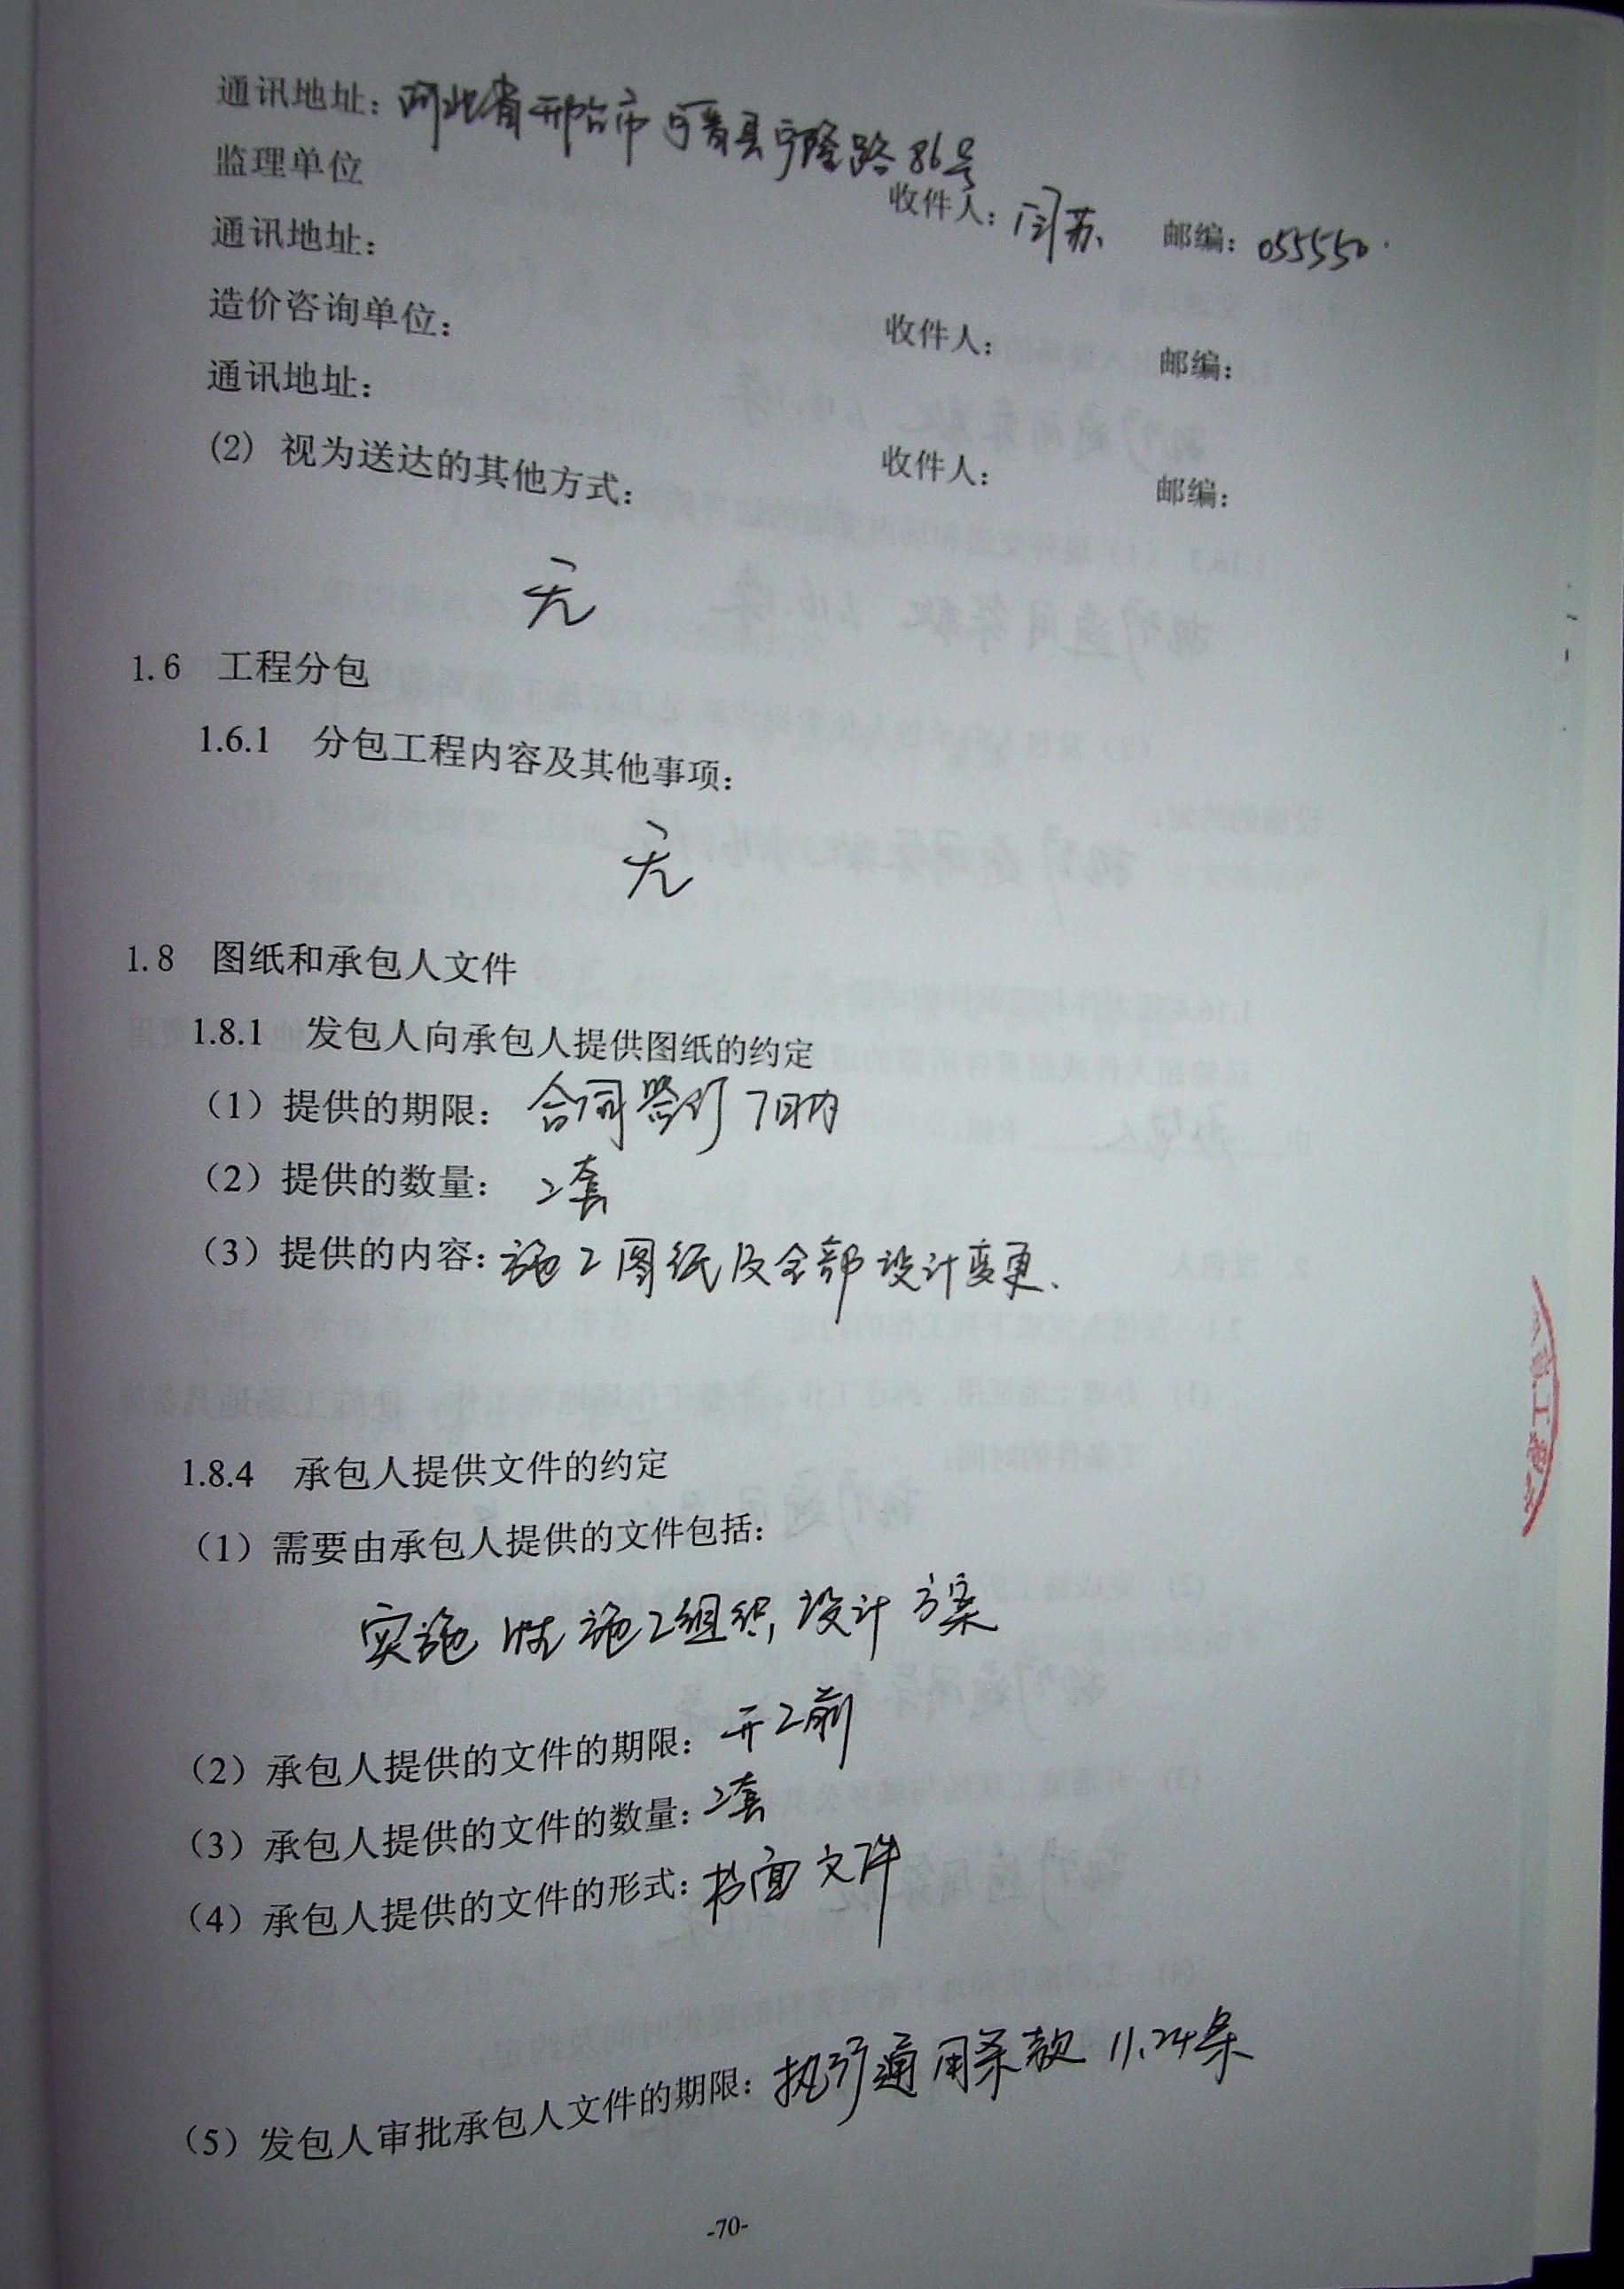 通讯地址：河北省邢台市宁晋县宁隆路86号
收件人：闫苏 邮编：055550
监理单位
通讯地址：
收件人： 邮编：
造价咨询单位：
通讯地址：
收件人： 邮编：
(2) 视为送达的其他方式：
无
1.6 工程分包
1.6.1 分包工程内容及其他事项：
无
1.8 图纸和承包人文件
1.8.1 发包人向承包人提供图纸的约定
（1）提供的期限：合同签订7日内
（2）提供的数量：2套
（3）提供的内容：施工图纸及全部设计变更.
1.8.4 承包人提供文件的约定
（1）需要由承包人提供的文件包括：
实施性施工组织设计方案
（2）承包人提供的文件的期限：开工前
（3）承包人提供的文件的数量：2套
（4）承包人提供的文件的形式：书面文件
（5）发包人审批承包人文件的期限：执行通用条款 11.24条
-70-